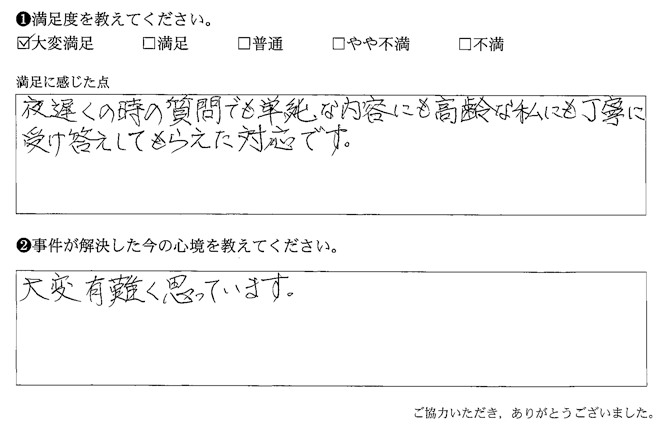 ❶満足度を教えてください。
☑大変満足 □満足 □普通 □やや不満 □不満
満足に感じた点
夜遅くの時の質問でも単純な内容にも高齢な私にも丁寧に
受け答えしてもらえた対応です。
❷事件が解決した今の心境を教えてください。
大変有難く思っています。
ご協力いただき，ありがとうございました。